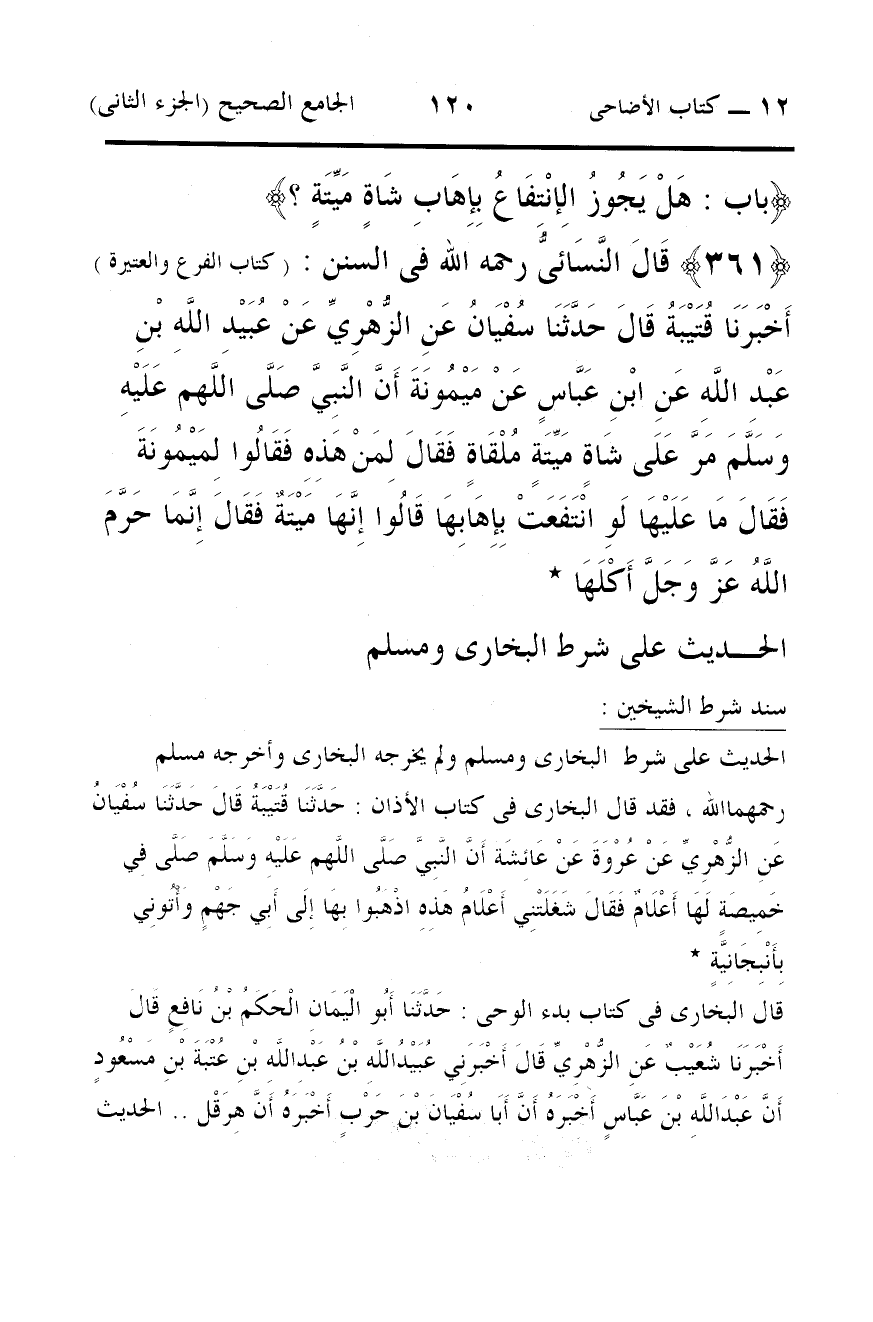 ١٢ ــ كتاب الأضاحى ١٢٠ الجامع الصحيح (الجزء الثانى)
﴿باب : هَلْ يَجُوزُ الإِنْتِفَاعُ بِإِهَابِ شَاةٍ مَيِّتَةٍ ؟﴾
﴿٣٦١﴾ قَالَ النَّسَائىُّ رحمه الله فى السنن : ( كتاب الفرع والعتيرة )
أَخْبَرَنَا قُتَيْبَةُ قَالَ حَدَّثَنَا سُفْيَانُ عَنِ الزُّهْرِيِّ عَنْ عُبَيْدِ اللَّهِ بْنِ
عَبْدِ اللَّهِ عَنِ ابْنِ عَبَّاسٍ عَنْ مَيْمُونَةَ أَنَّ النَّبِيَّ صَلَّى اللهم عَلَيْهِ
وَسَلَّمَ مَرَّ عَلَى شَاةٍ مَيِّتَةٍ مُلْقَاةٍ فَقَالَ لِمَنْ هَذِهِ فَقَالُوا لِمَيْمُونَةَ
فَقَالَ مَا عَلَيْهَا لَوِ انْتَفَعَتْ بِإِهَابِهَا قَالُوا إِنَّهَا مَيْتَةٌ فَقَالَ إِنَّمَا حَرَّمَ
اللَّهُ عَزَّ وَجَلَّ أَكْلَهَا *
الحـــديث على شرط البخارى ومسلم
سند شرط الشيخين :
الحديث على شرط البخارى ومسلم ولم يخرجه البخارى وأخرجه مسلم
رحمهماالله ، فقد قال البخارى فى كتاب الأذان : حَدَّثَنَا قُتَيْبَةُ قَالَ حَدَّثَنَا سُفْيَانُ
عَنِ الزُّهْرِيِّ عَنْ عُرْوَةَ عَنْ عَائِشَةَ أَنَّ النَّبِيَّ صَلَّى اللهم عَلَيْهِ وَسَلَّمَ صَلَّى فِي
خَمِيصَةٍ لَهَا أَعْلَامٌ فَقَالَ شَغَلَتْنِي أَعْلَامُ هَذِهِ اذْهَبُوا بِهَا إِلَى أَبِي جَهْمٍ وَأْتُونِي
بِأَنْبِجَانِيَّةٍ *
قال البخارى فى كتاب بدء الوحى : حَدَّثَنَا أَبُو الْيَمَانِ الْحَكَمُ بْنُ نَافِعٍ قَالَ
أَخْبَرَنَا شُعَيْبٌ عَنِ الزُّهْرِيِّ قَالَ أَخْبَرَنِي عُبَيْدُاللَّهِ بْنُ عَبْدِاللَّهِ بْنِ عُتْبَةَ بْنِ مَسْعُودٍ
أَنَّ عَبْدَاللَّهِ بْنَ عَبَّاسٍ أَخْبَرَهُ أَنَّ أَبَا سُفْيَانَ بْنَ حَرْبٍ أَخْبَرَهُ أَنَّ هِرَقْلَ .. الحديث